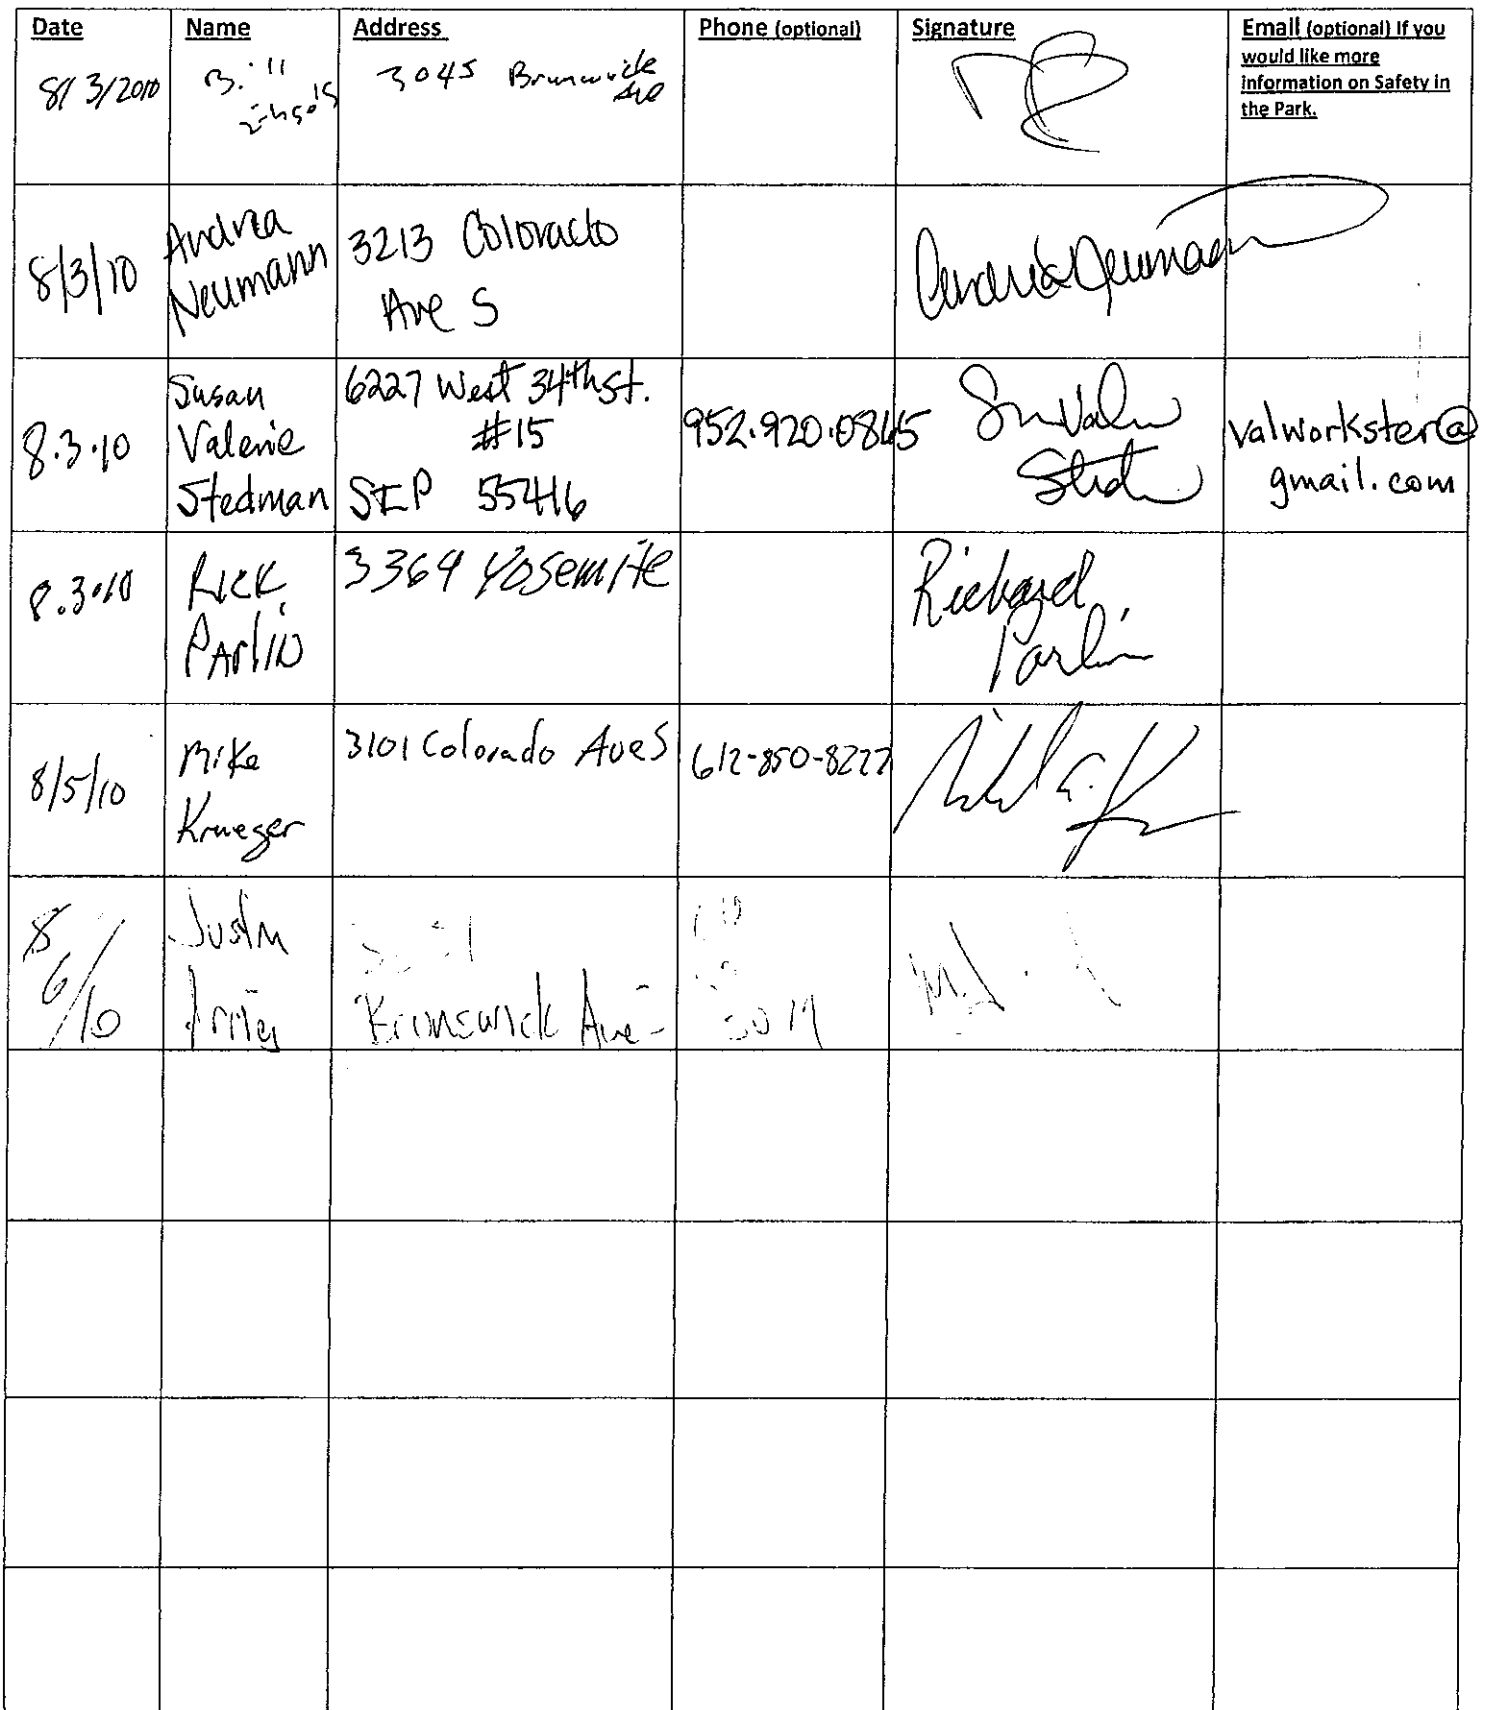 Date Name Address Phone (optional) Signature Email (optional) If you
would like more
information on Safety in
the Park.
8/3/2010 Bill 3045 Brunswick
Ave
8/3/10 Andrea
Neumann 3213 Colorado
Ave S Andrea Neumann
8.3.10 Susan
Valerie
Stedman 6227 West 34th St.
#15
SLP 55416 952.920.0845 valworkster@
gmail.com
8.3.10 Rick
Parlin 3364 Yosemite Richard
Parlin
8/5/10 Mike
Krueger 3101 Colorado Ave S 612-850-8227
8/6/10 Justin
Brunswick Ave